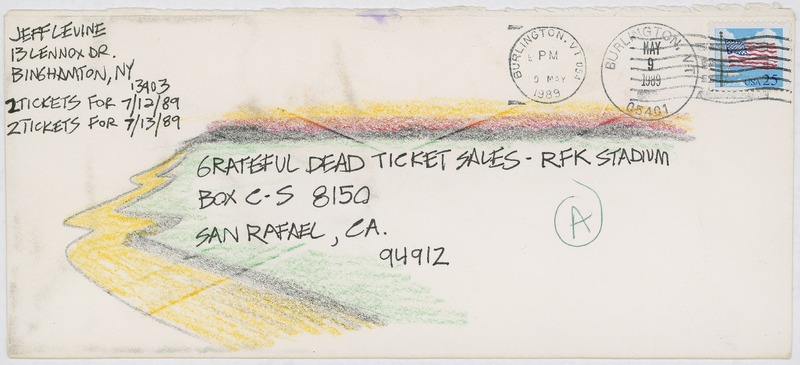 JEFF LEVINE
13 LENNOX DR.
BINGHAMTON, NY
13903
2 TICKETS FOR 7/12/89
2 TICKETS FOR 7/13/89
BURLINGTON, VT
PM
9 MAY
1989
BURLINGTON, VT
MAY
9
1989
05401
USA 25
GRATEFUL DEAD TICKET SALES - RFK STADIUM
BOX C-S 8150
SAN RAFAEL, CA.
94912
A